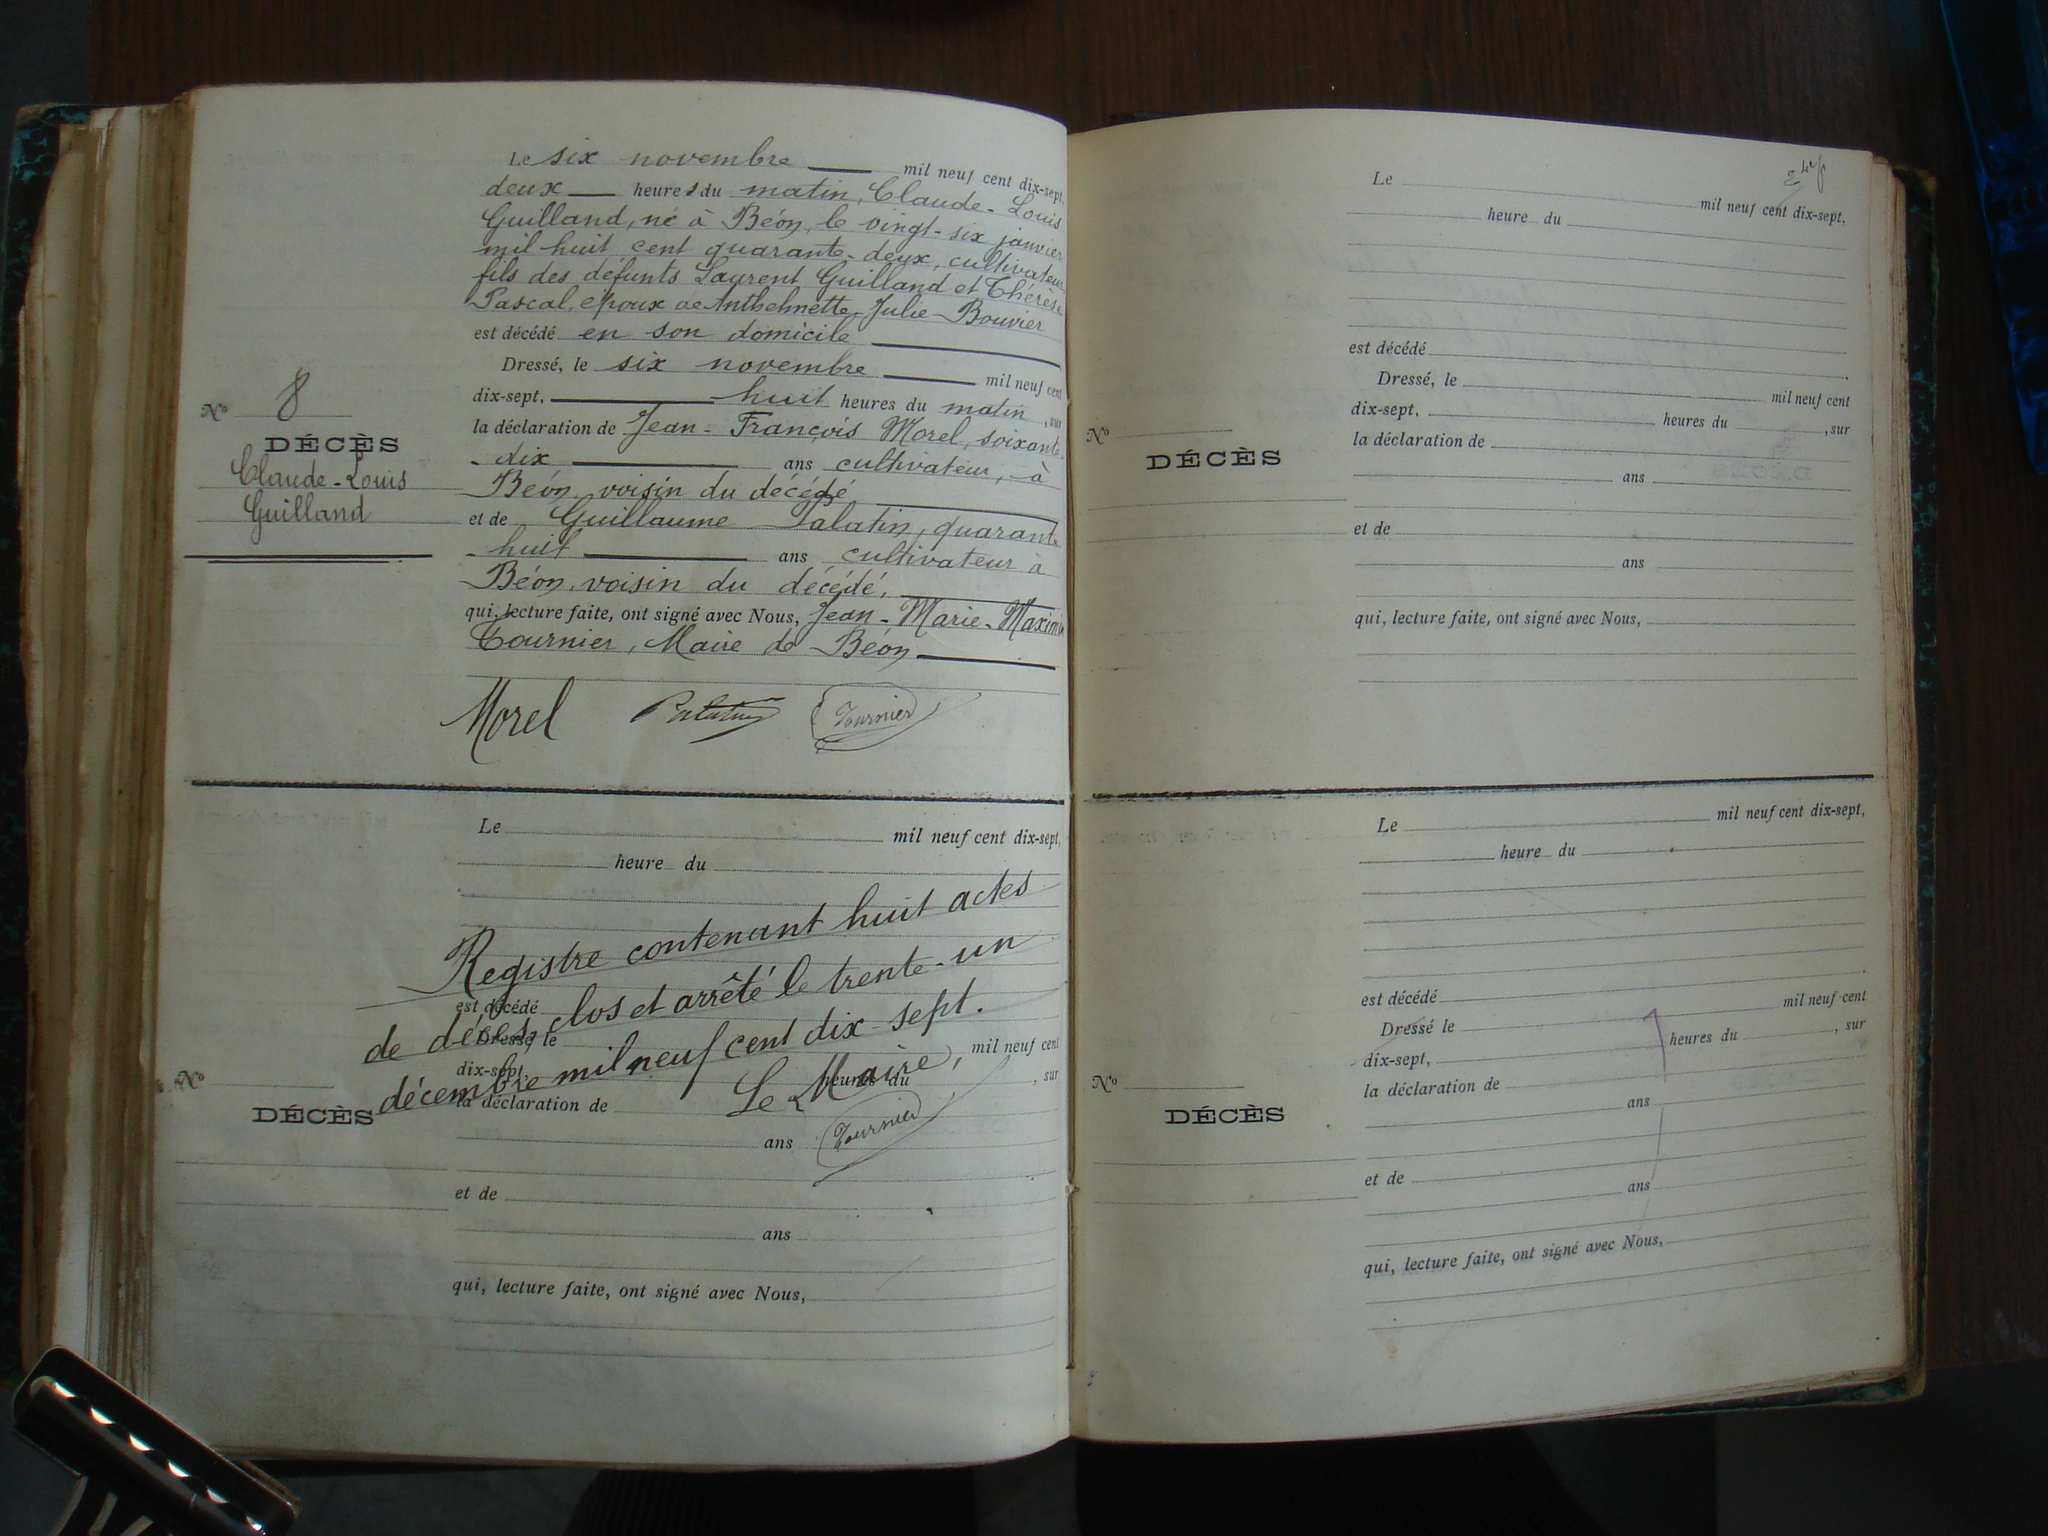 Le six novembre mil neuf cent dix-sept,
deux heures du matin, Claude-Louis
Guilland, né à Béon, le vingt-six janvier
mil huit cent quarante-deux, cultivateur
fils des défunts Laurent Guilland et Thérèse
Pascal, époux de Anthelmette-Julie Bouvier
est décédé en son domicile
Dressé, le six novembre mil neuf cent
dix-sept, huit heures du matin, sur
la déclaration de Jean-François Morel, soixante-
-dix ans cultivateur, à
Béon, voisin du décédé
et de Guillaume Palatin, quarante
-huit ans cultivateur à
Béon, voisin du décédé,
qui, lecture faite, ont signé avec Nous, Jean-Marie-Maximin
Tournier, Maire de Béon
Morel Palatin Tournier
No 8
DÉCÈS
Claude-Louis
Guilland
Le mil neuf cent dix-sept,
heure du
est décédé
Dressé, le mil neuf cent
dix-sept, heures du , sur
la déclaration de
ans
et de
ans
qui, lecture faite, ont signé avec Nous,
Registre contenant huit actes
de décès, clos et arrêté le trente-un
décembre mil neuf cent dix-sept.
Le Maire,
Tournier
No
DÉCÈS
Le mil neuf cent dix-sept,
heure du
est décédé
Dressé, le mil neuf cent
dix-sept, heures du , sur
la déclaration de
ans
et de
ans
qui, lecture faite, ont signé avec Nous,
No
DÉCÈS
Le mil neuf cent dix-sept,
heure du
est décédé
Dressé le mil neuf cent
dix-sept, heures du , sur
la déclaration de
ans
et de
ans
qui, lecture faite, ont signé avec Nous,
No
DÉCÈS